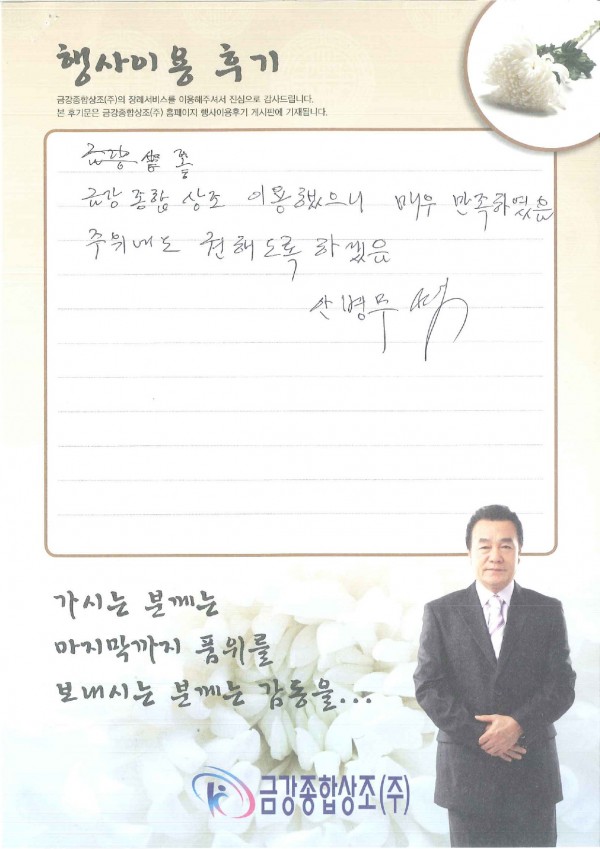 행사이용 후기
금강종합상조(주)의 장례서비스를 이용해주셔서 진심으로 감사드립니다.
본 후기문은 금강종합상조(주) 홈페이지 행사이용후기 게시판에 기재됩니다.
금강종합 상조 이용했으니 매우 만족하였음
주위에도 권해도록 하겠음
가시는 분께는
마지막까지 품위를
보내시는 분께는 감동을...
금강종합상조(주)